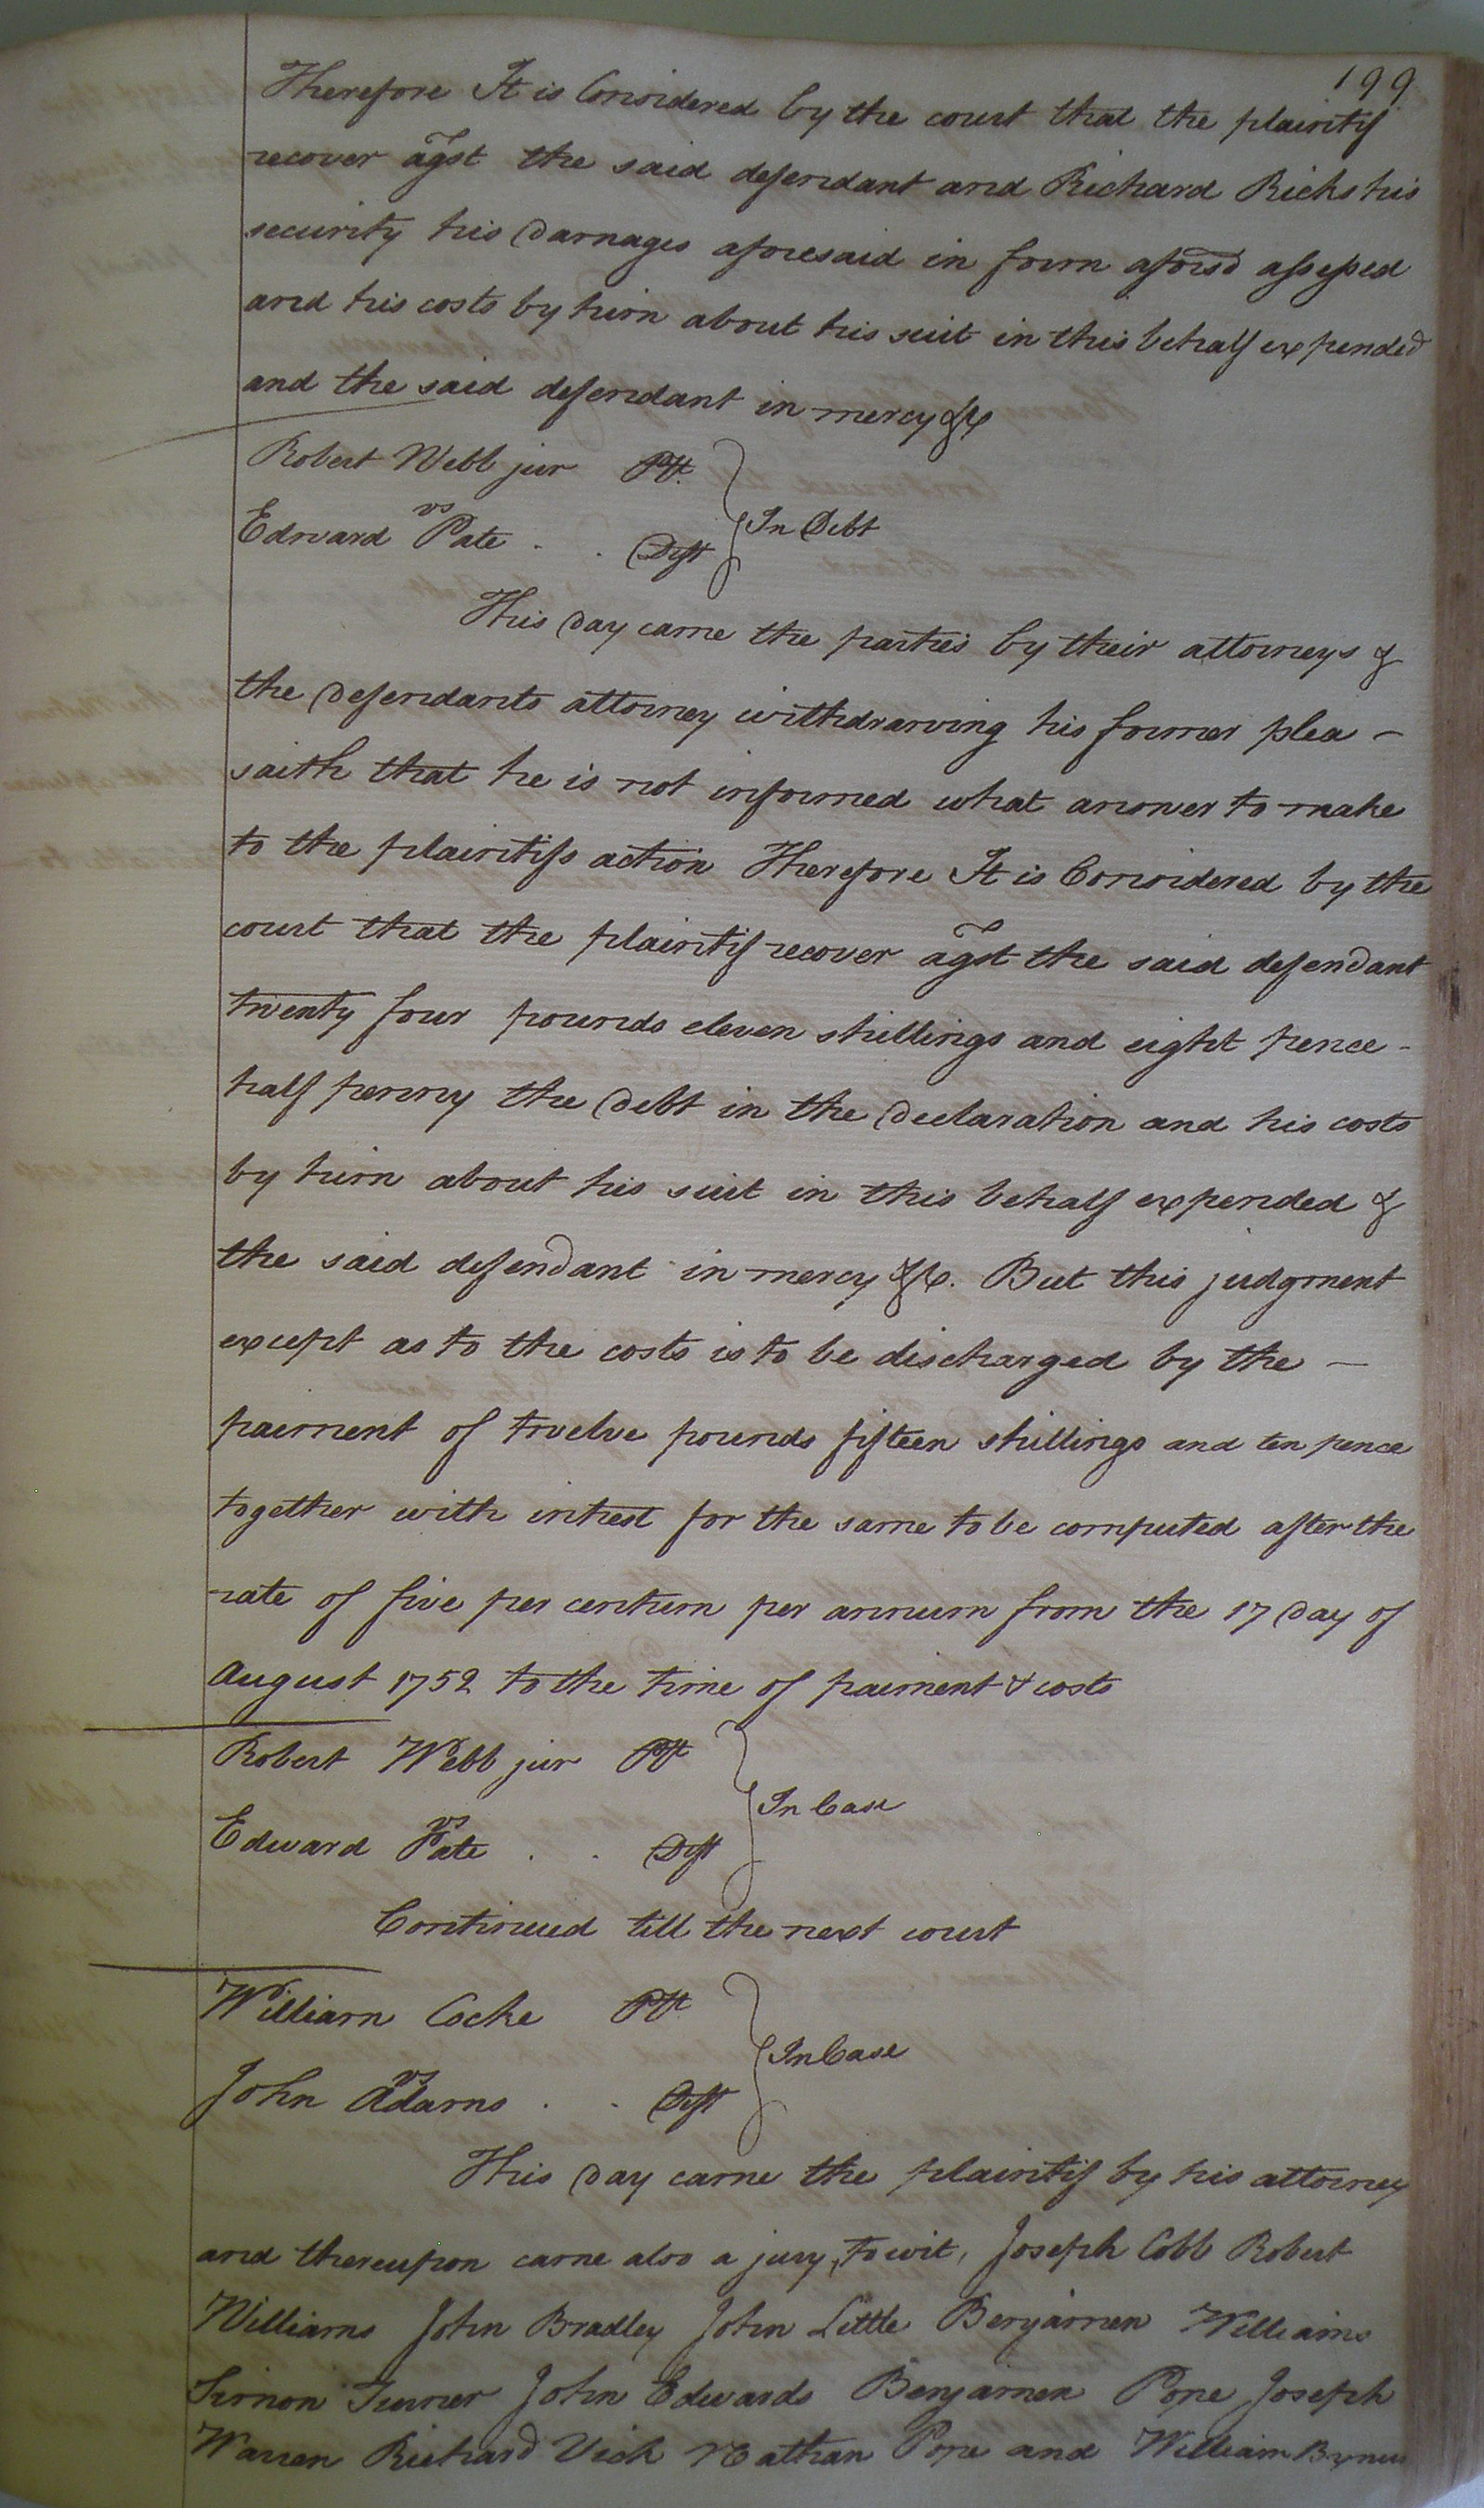 199
Therefore It is Considered by the court that the plaintif
recover agst the said defendant and Richard Ricks his
security his Damages aforesaid in form aforsd assessed
and his costs by him about his suit in this behalf expended
and the said defendant in mercy &c
Robert Webb jur Plt.
vs
In Debt
Edward Pate . . Deft
This Day came the parties by their attorneys &
the Defendants attorney withdrawing his former plea –
saith that he is not informed what answer to make
to the plaintifs action Therefore It is Considered by the
court that the plaintif recover agst the said defendant
twenty four pounds eleven shillings and eight pence –
half penny the Debt in the Declaration and his costs
by him about his suit in this behalf expended &
the said defendant in mercy &c. But this judgment
except as to the costs is to be discharged by the –
paiment of twelve pounds fifteen shillings and ten pence
together with intrest for the same to be computed after the
rate of five per centum per annum from the 17 Day of
August 1752 to the time of paiment & costs
Robert Webb jur Plt
vs
In Case
Edward Pate . . Deft
Continued till the next court
William Cocke Plt
vs
In Case
John Adams . . Deft
This Day came the plaintif by his attorney
and thereupon came also a jury, to wit, Joseph Cobb Robert
Williams John Bradley John Little Benjamen Williams
Simon Turner John Edwards Benjamen Pope Joseph
Warren Richard Vick Nathan Pope and William Bynum